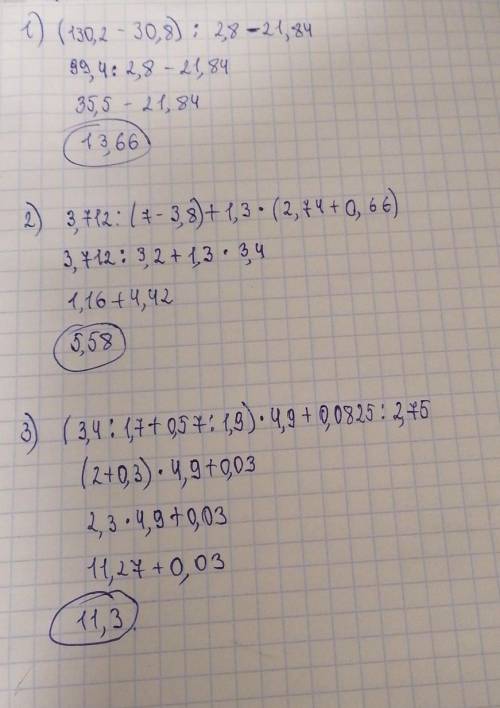 1) (130,2 - 30,8) : 2,8 - 21,84
99,4 : 2,8 - 21,84
35,5 - 21,84
13,66
2) 3,712 : (7 - 3,8) + 1,3 · (2,74 + 0,66)
3,712 : 3,2 + 1,3 · 3,4
1,16 + 4,42
5,58
3) (3,4 : 1,7 + 0,57 : 1,9) · 4,9 + 0,0825 : 2,75
(2 + 0,3) · 4,9 + 0,03
2,3 · 4,9 + 0,03
11,27 + 0,03
11,3